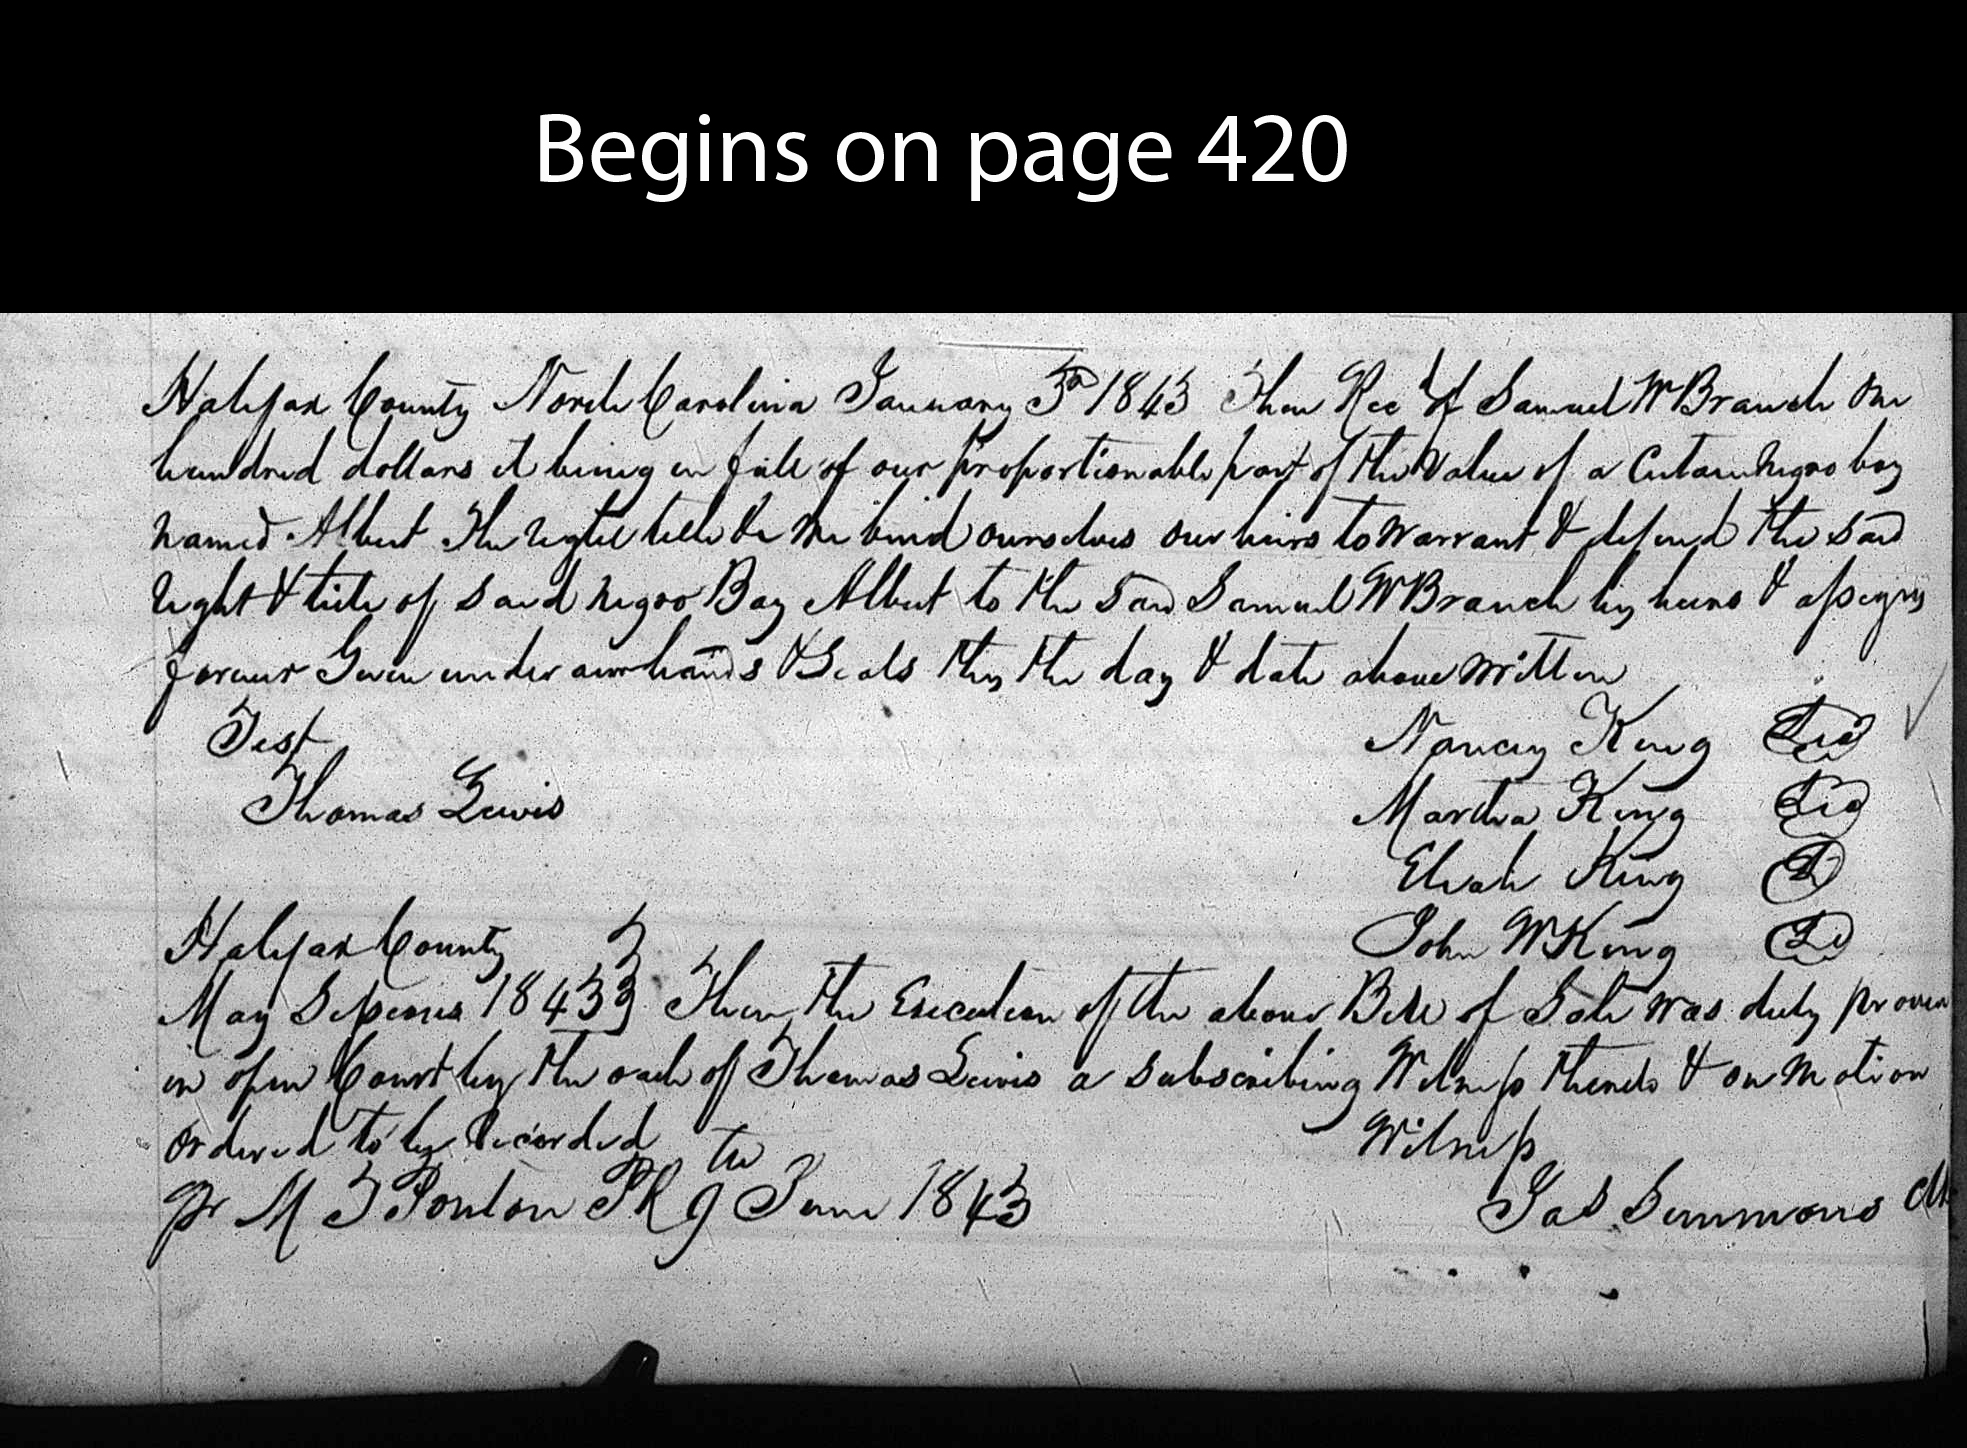 Begins on page 420
Halifax County North Carolina January 3d 1843 Then Recd of Samuel W Branch One
hundred dollars it being in full of our proportionable part of the Value of a Certain negro boy
named Albert The right title &c We bind ourselves our heirs to Warrant & defend the said
right & title of said negro Boy Albert to the said Samuel W Branch his heirs & assigns
forever Given under our hands & Seals this the day & date above Written
Test Nancy King
Thomas Lewis Martha King
King
John W King
Halifax County
May Sessions 1843 Then the Execution of the above Bill of Sale was duly proven
in open Court by the oath of Thomas Lewis a subscribing Witness thereto & on Motion
Ordered to be Recorded Witness
pr M T Ponton PR 9th June 1843 Jas Simmons